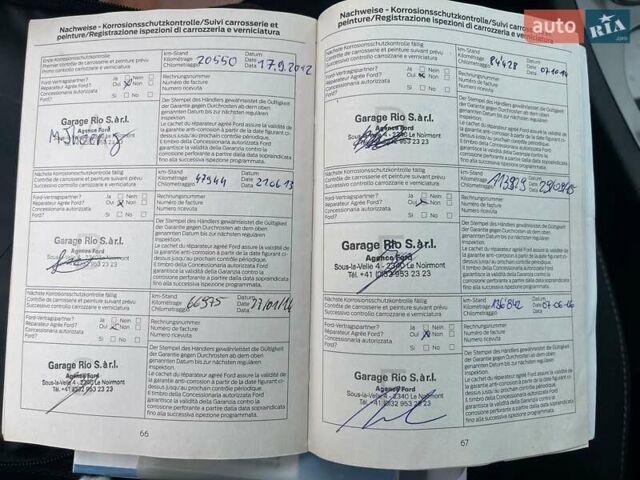 Nachweise - Korrosionsschutzkontrolle/Suivi carrosserie et
peinture/Registrazione ispezioni di carrozzeria e verniciatura
Erste Korrosionsschutzkontrolle
Premier contrôle de carrosserie et peinture prévu
Primo controllo carrozzeria e verniciatura
km-Stand
Kilométrage
Chilometraggio
20550
Datum
Date
Data
17.9.2012
Ford-Vertragspartner?
Réparateur Agréé Ford?
Concessionaria autorizzata
Ford?
Ja Nein
Oui Non
Si No
Rechnungsnummer
Numéro de facture
Numero ricevuta
Garage Rio S.à r.l.
Agence Ford
Sous-la-Velle 4 - 2340 Le Noirmont
Der Stempel des Händlers gewährleistet die Gültigkeit
der Garantie gegen Durchrosten ab dem oben
genannten Datum bis zur nächsten regulären
Inspektion.
Le cachet du réparateur agréé Ford assure la validité de
la garantie anti-corrosion à partir de la date figurant ci-
dessus jusqu'au prochain contrôle périodique.
Il timbro della Concessionaria autorizzata Ford
garantisce la validità della Garanzia contro la
corrosione perforante a partire dalla data sopraindicata
fino alla successiva ispezione programmata.
Nächste Korrosionsschutzkontrolle fällig
Contrôle de carrosserie et peinture suivant prévu
Successivo controllo carrozzeria e verniciatura
km-Stand
Kilométrage
Chilometraggio
47944
Datum
Date
Data
21.06.13
Ford-Vertragspartner?
Réparateur Agréé Ford?
Concessionaria autorizzata
Ford?
Ja Nein
Oui Non
Si No
Rechnungsnummer
Numéro de facture
Numero ricevuta
Garage Rio S.à r.l.
Agence Ford
Sous-la-Velle 4 - 2340 Le Noirmont
Tél. +41 (0)32 953 23 23
Der Stempel des Händlers gewährleistet die Gültigkeit
der Garantie gegen Durchrosten ab dem oben
genannten Datum bis zur nächsten regulären
Inspektion.
Le cachet du réparateur agréé Ford assure la validité de
la garantie anti-corrosion à partir de la date figurant ci-
dessus jusqu'au prochain contrôle périodique.
Il timbro della Concessionaria autorizzata Ford
garantisce la validità della Garanzia contro la
corrosione perforante a partire dalla data sopraindicata
fino alla successiva ispezione programmata.
Nächste Korrosionsschutzkontrolle fällig
Contrôle de carrosserie et peinture suivant prévu
Successivo controllo carrozzeria e verniciatura
km-Stand
Kilométrage
Chilometraggio
66975
Datum
Date
Data
Ford-Vertragspartner?
Réparateur Agréé Ford?
Concessionaria autorizzata
Ford?
Ja Nein
Oui Non
Si No
Rechnungsnummer
Numéro de facture
Numero ricevuta
Garage Rio S.à r.l.
Agence Ford
Sous-la-Velle 4 - 2340 Le Noirmont
Tél. +41 (0)32 953 23 23
Der Stempel des Händlers gewährleistet die Gültigkeit
der Garantie gegen Durchrosten ab dem oben
genannten Datum bis zur nächsten regulären
Inspektion.
Le cachet du réparateur agréé Ford assure la validité de
la garantie anti-corrosion à partir de la date figurant ci-
dessus jusqu'au prochain contrôle périodique.
Il timbro della Concessionaria autorizzata Ford
garantisce la validità della Garanzia contro la
corrosione perforante a partire dalla data sopraindicata
fino alla successiva ispezione programmata.
66
Nachweise - Korrosionsschutzkontrolle/Suivi carrosserie et
peinture/Registrazione ispezioni di carrozzeria e verniciatura
Nächste Korrosionsschutzkontrolle fällig
Contrôle de carrosserie et peinture suivant prévu
Successivo controllo carrozzeria e verniciatura
km-Stand
Kilométrage
Chilometraggio
84428
Datum
Date
Data
Ford-Vertragspartner?
Réparateur Agréé Ford?
Concessionaria autorizzata
Ford?
Ja Nein
Oui Non
Si No
Rechnungsnummer
Numéro de facture
Numero ricevuta
Garage Rio S.à r.l.
Agence Ford
Sous-la-Velle 4 - 2340 Le Noirmont
Tél. +41 (0)32 953 23 23
Der Stempel des Händlers gewährleistet die Gültigkeit
der Garantie gegen Durchrosten ab dem oben
genannten Datum bis zur nächsten regulären
Inspektion.
Le cachet du réparateur agréé Ford assure la validité de
la garantie anti-corrosion à partir de la date figurant ci-
dessus jusqu'au prochain contrôle périodique.
Il timbro della Concessionaria autorizzata Ford
garantisce la validità della Garanzia contro la
corrosione perforante a partire dalla data sopraindicata
fino alla successiva ispezione programmata.
Nächste Korrosionsschutzkontrolle fällig
Contrôle de carrosserie et peinture suivant prévu
Successivo controllo carrozzeria e verniciatura
km-Stand
Kilométrage
Chilometraggio
Datum
Date
Data
Ford-Vertragspartner?
Réparateur Agréé Ford?
Concessionaria autorizzata
Ford?
Ja Nein
Oui Non
Si No
Rechnungsnummer
Numéro de facture
Numero ricevuta
Garage Rio S.à r.l.
Agence Ford
Sous-la-Velle 4 - 2340 Le Noirmont
Tél. +41 (0)32 953 23 23
Der Stempel des Händlers gewährleistet die Gültigkeit
der Garantie gegen Durchrosten ab dem oben
genannten Datum bis zur nächsten regulären
Inspektion.
Le cachet du réparateur agréé Ford assure la validité de
la garantie anti-corrosion à partir de la date figurant ci-
dessus jusqu'au prochain contrôle périodique.
Il timbro della Concessionaria autorizzata Ford
garantisce la validità della Garanzia contro la
corrosione perforante a partire dalla data sopraindicata
fino alla successiva ispezione programmata.
Nächste Korrosionsschutzkontrolle fällig
Contrôle de carrosserie et peinture suivant prévu
Successivo controllo carrozzeria e verniciatura
km-Stand
Kilométrage
Chilometraggio
136842
Datum
Date
Data
Ford-Vertragspartner?
Réparateur Agréé Ford?
Concessionaria autorizzata
Ford?
Ja Nein
Oui Non
Si No
Rechnungsnummer
Numéro de facture
Numero ricevuta
Garage Rio S.à r.l.
Agence Ford
Sous-la-Velle 4 - 2340 Le Noirmont
Tél. +41 (0)32 953 23 23
Der Stempel des Händlers gewährleistet die Gültigkeit
der Garantie gegen Durchrosten ab dem oben
genannten Datum bis zur nächsten regulären
Inspektion.
Le cachet du réparateur agréé Ford assure la validité de
la garantie anti-corrosion à partir de la date figurant ci-
dessus jusqu'au prochain contrôle périodique.
Il timbro della Concessionaria autorizzata Ford
garantisce la validità della Garanzia contro la
corrosione perforante a partire dalla data sopraindicata
fino alla successiva ispezione programmata.
67
auto RIA.com